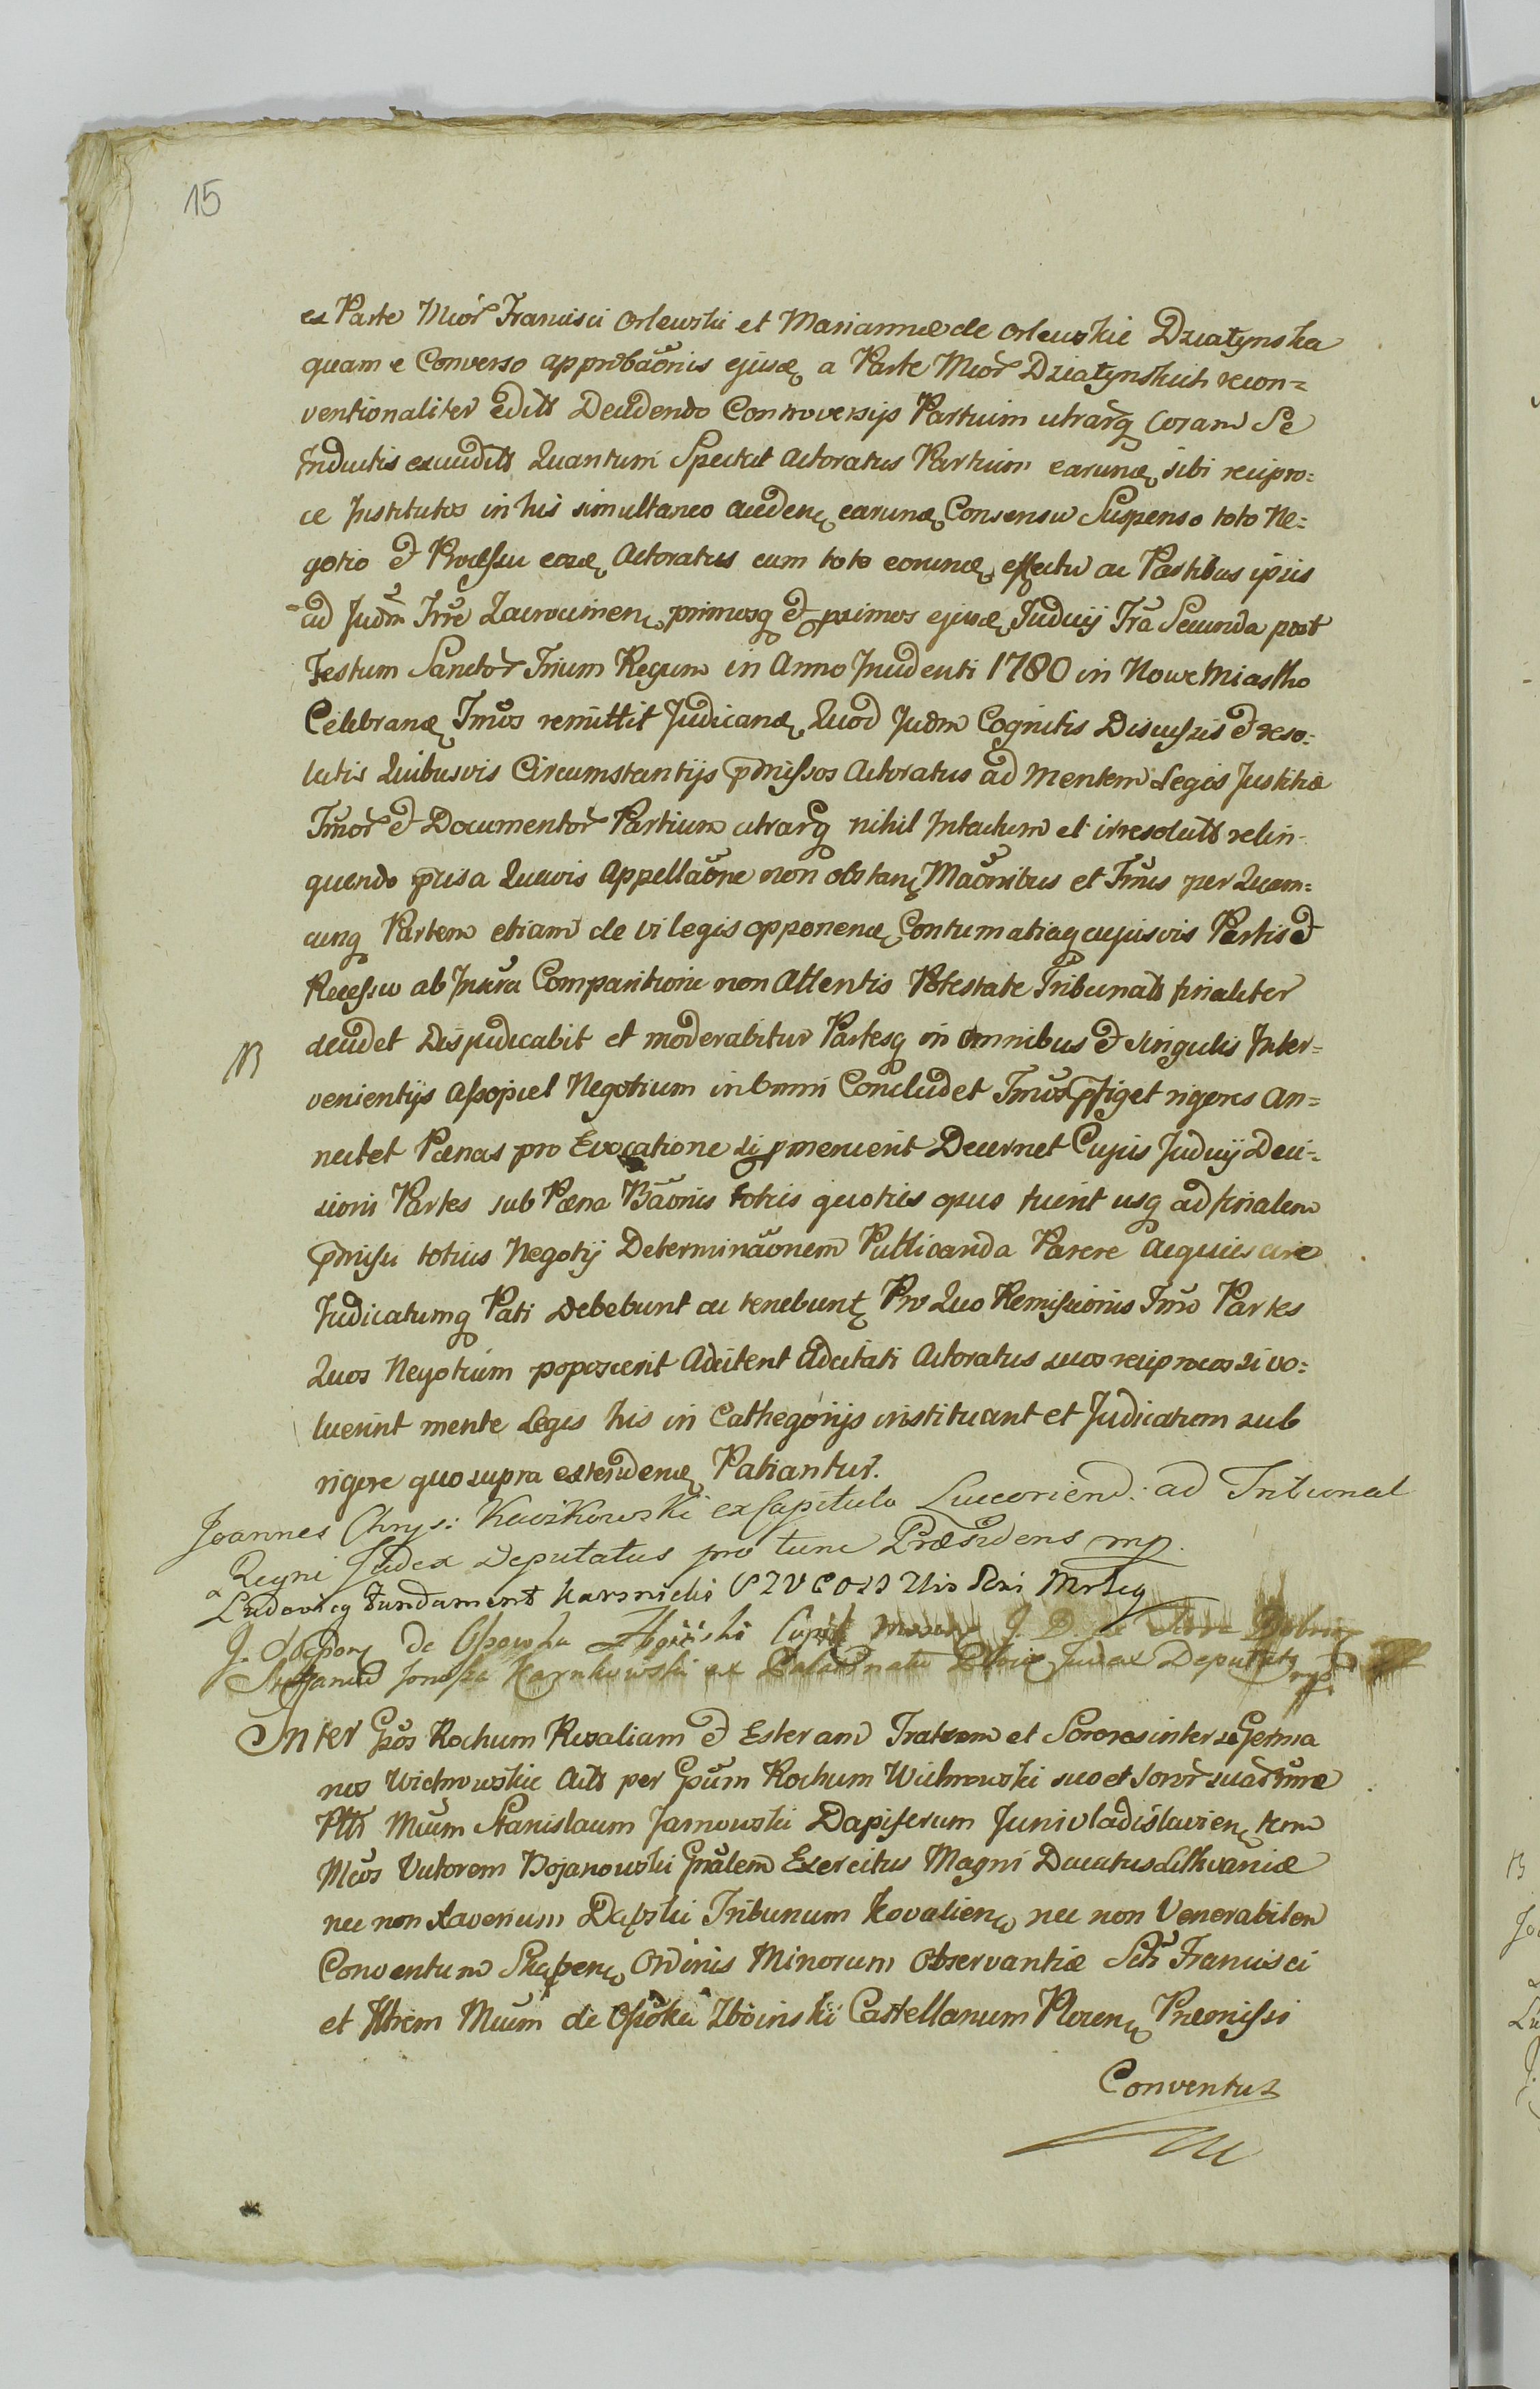 15
ex Parte Mcor Francisci Orlewski et Mariannæ de Orlewskie Dziatynska
quam e Converso approbaonis ejusd a Parte Mcor Dziatynskich recon=
ventionaliter edits Decidendo Controversijs Partium utrarq Coram Se
Inductis excudits Quantum Spectat Actoratus Partium earund sibi recipro=
ce Institutos in his simultaneo acceden earund Consensu Suspenso toto Ne=
gotio et Processu eord Actoratus cum toto eorund effectu ac Partibus ipsis
ad Judm Trre Zacrocimen primosq et primos ejusd Judicij Fra Secunda post
Festum Sanctor Trium Regum in Anno Incidenti 1780 in Nowe Miastho
Celebrand Tmos remittit Judicand Quod Judm Cognitis Discussis et reso=
lutis Quibusvis Circumstantijs pmissos Actoratus ad Mentem Legis Justitiæ
Tmor et Documentor Partium utrarq nihil Intactum et irresoluts relin-
quendo prisa Quavis Appellaone non obstan Maonibus et Tmis per Quam=
cunq Partem etiam de vi legis opponend Contumatiaq cujusvis Partis et
Recessu ab Jnscra Comparitione non Attentis Potestate Tribunals finaliter
decidet Disjudicabit et moderabitur Partesq in Omnibus et singulis Inter=
NB
venientijs Assopiet Negotium in bonum Concludet Tmos pfiget rigores An=
nectet Pænas pro Evocatione si pmeruerit Decernet Cujus Judicij Deci=
sioni Partes sub Pæna Baonis toties quoties opus fuerit usq ad finalem
pmissi totius Negotij Determinaonem Publicanda Parere Acquiescere
Judicatumq Pati Debebunt ac tenebunt Pro Quo Remissionis Tmo Partes
Quos Negotium poposcerit Adcitent Adcitati Actoratus suos reciprocos si vo=
luerint mente Legis his in Cathegorijs instituant et Judicatum sub
rigore quo supra extendend Patiantur.
Joannes Chrys: Kaczkowski ex Capitulo Luceoriens: ad Tribunal
Regni Judex Deputatus pro tunc Præsidens mp.
Ludovicq Karsnicki
J. de Ossowka Zboiński
Karnkowski ex Palatinatu Judex Deputatq mp.
Inter Gsos Rochum Rosaliam et Esteram Fratrem et Sorores inter se Germa
nos Wichrowskie Acts per Gsum Rochum Wichrowski suo et soror suar nme
Ptts Mcum Stanislaum Jarnowski Dapiferum Junivladislavien tum
Mcos Victorem Bojanowski Gnalem Exercitus Magni Ducatus Lithvaniæ
nec non Xaverium Dąpski Tribunum Kovalien nec non Venerabilem
Conventum Skąpen Ordinis Minorum Observantiæ Scti Francisci
et Illrem Mcum de Ossówka Zboinski Castellanum Plocen Præmissi
Conventus